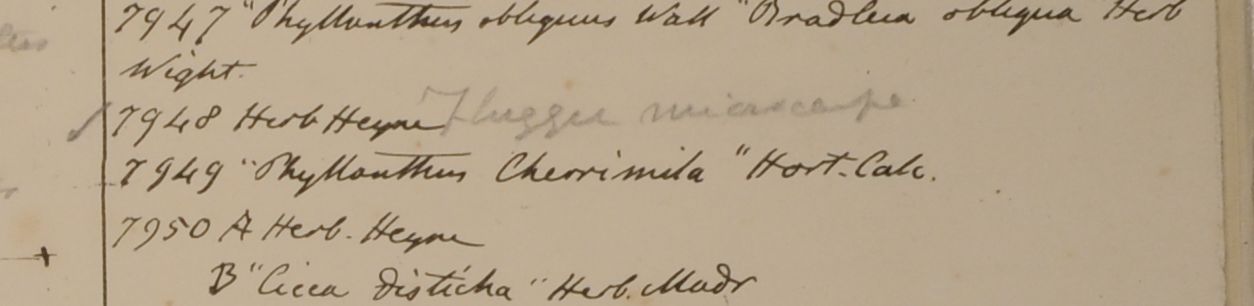 7947 "Phyllanthus obliquus Wall "Bradleia obliqua Herb
Wight.
7948 Herb Heyne Fluggea microcarpa
7949 "Phyllanthus Cherrimila" Hort. Calc.
7950 A Herb. Heyne
B "Cicca disticha" Herb. Madr